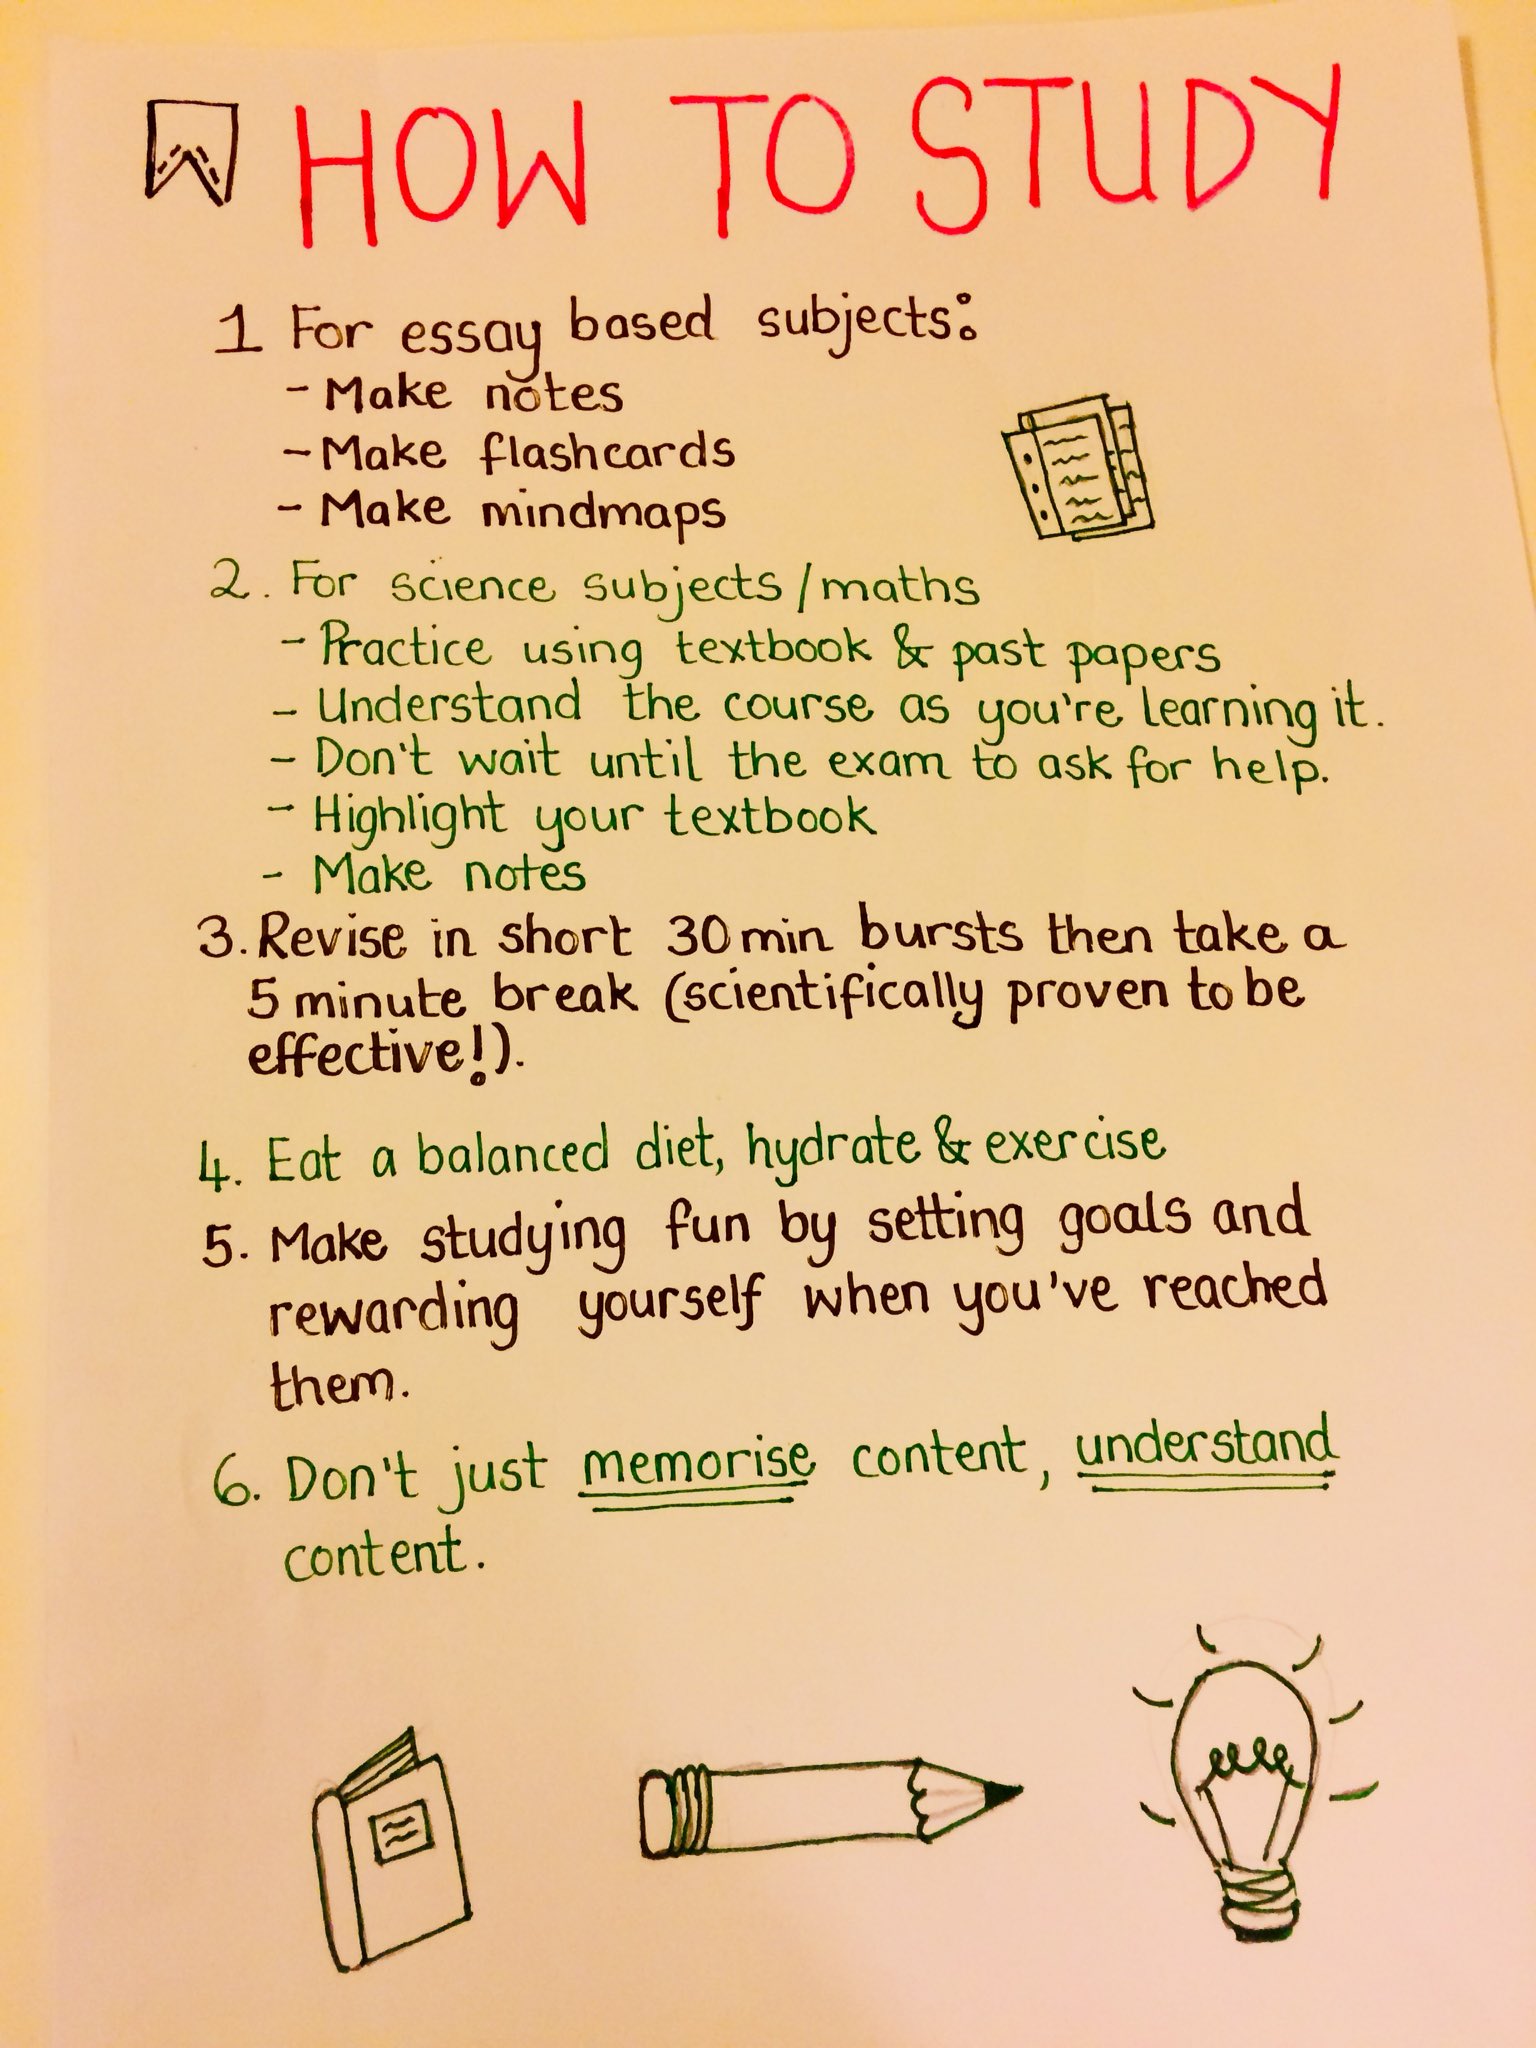 HOW TO STUDY
1 For essay based subjects:
- Make notes
- Make flashcards
- Make mindmaps
2. For science subjects/maths
- Practice using textbook & past papers
- Understand the course as you're learning it.
- Don't wait until the exam to ask for help.
- Highlight your textbook
- Make notes
3. Revise in short 30min bursts then take a
5 minute break (scientifically proven to be
effective!).
4. Eat a balanced diet, hydrate & exercise
5. Make studying fun by setting goals and
rewarding yourself when you've reached
them.
6. Don't just memorise content, understand
content.